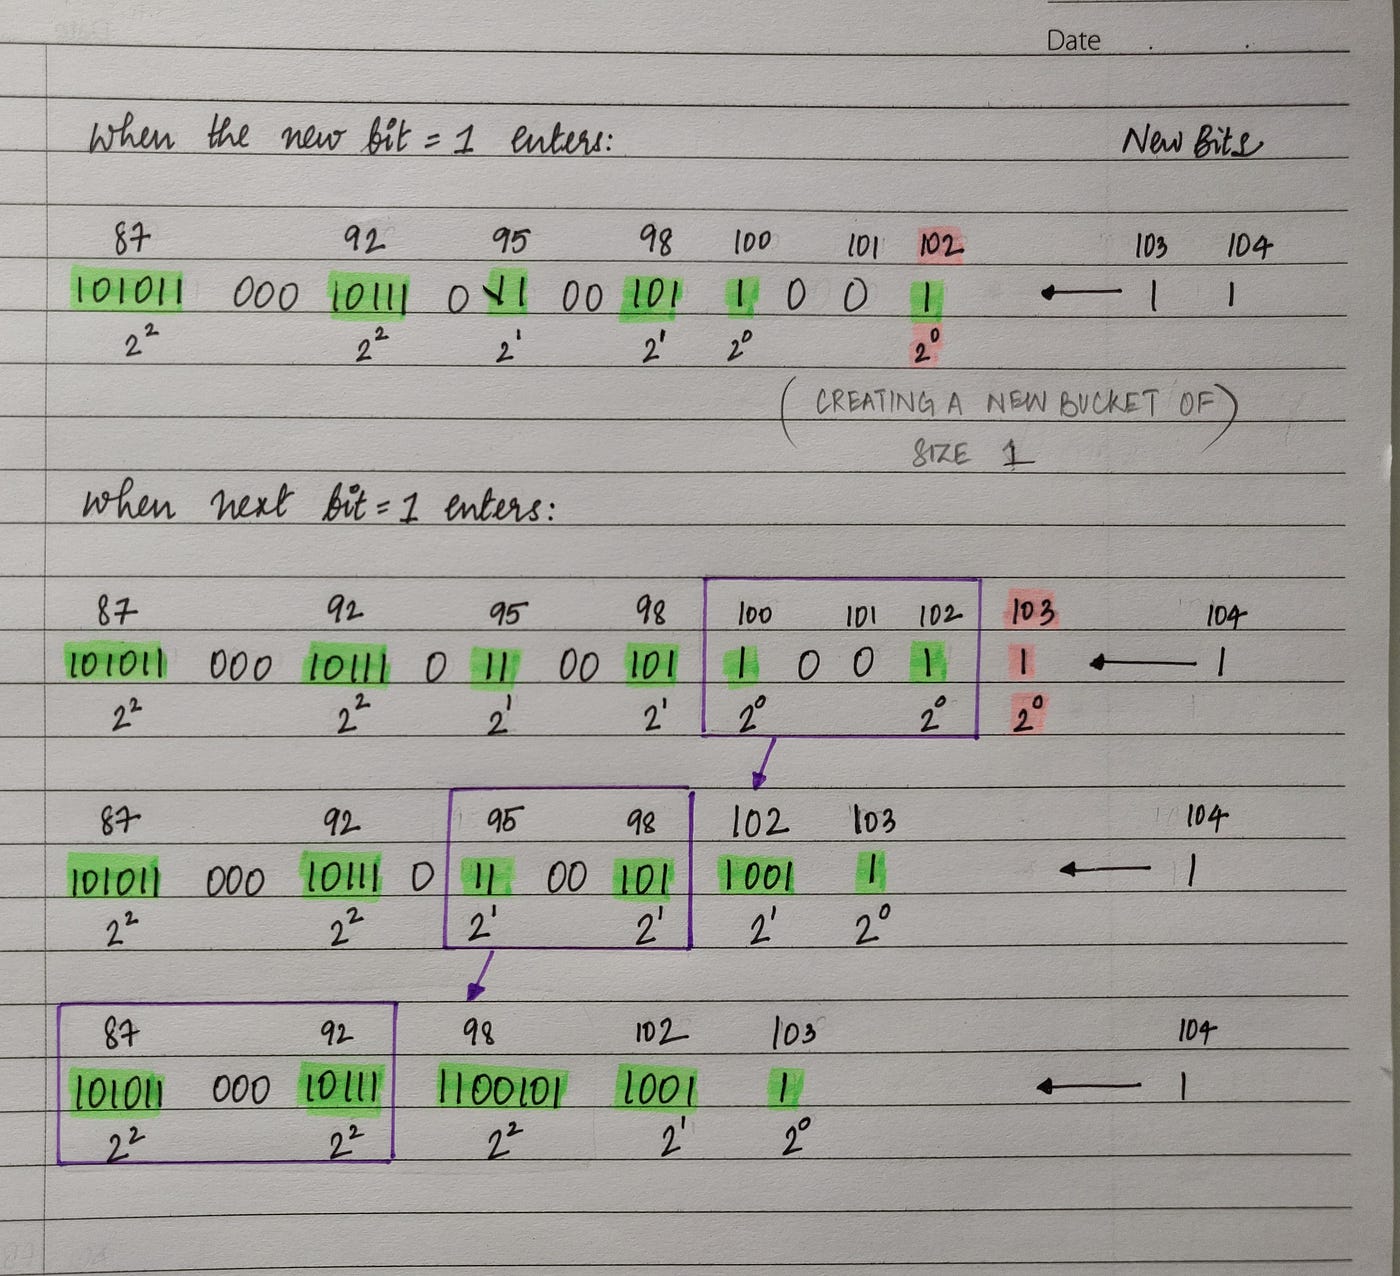 Date . .
When the new bit = 1 enters: New Bits
87 92 95 98 100 101 102 103 104
101011 000 10111 0 11 00 101 1 0 0 1 ← 1 1
2² 2² 2¹ 2¹ 2⁰ 2⁰
(CREATING A NEW BUCKET OF)
SIZE 1
When next bit = 1 enters:
87 92 95 98 100 101 102 103 104
101011 000 10111 0 11 00 101 1 0 0 1 1 ← 1
2² 2² 2¹ 2¹ 2⁰ 2⁰ 2⁰
87 92 95 98 102 103 104
101011 000 10111 0 11 00 101 1001 1 ← 1
2² 2² 2¹ 2¹ 2¹ 2⁰
87 92 98 102 103 104
101011 000 10111 1100101 1001 1 ← 1
2² 2² 2² 2¹ 2⁰